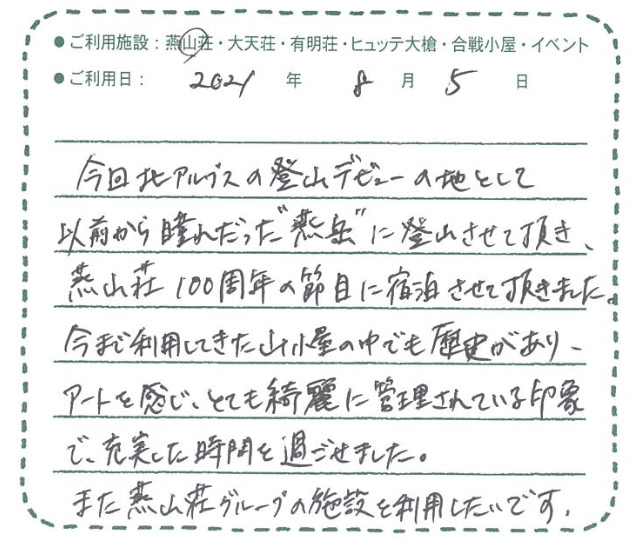 ● ご利用施設：燕山荘・大天荘・有明荘・ヒュッテ大槍・合戦小屋・イベント
● ご利用日： 2021 年 8 月 5 日
今回北アルプスの登山デビューの地として
以前から瞳れだった"燕岳"に登山させて頂き、
燕山荘100周年の節目に宿泊させて頂きました。
今まで利用してきた山小屋の中でも歴史があり、
アートを感じ、とても綺麗に管理されている印象
で、充実した時間を過ごせました。
また燕山荘グループの施設を利用したいです。